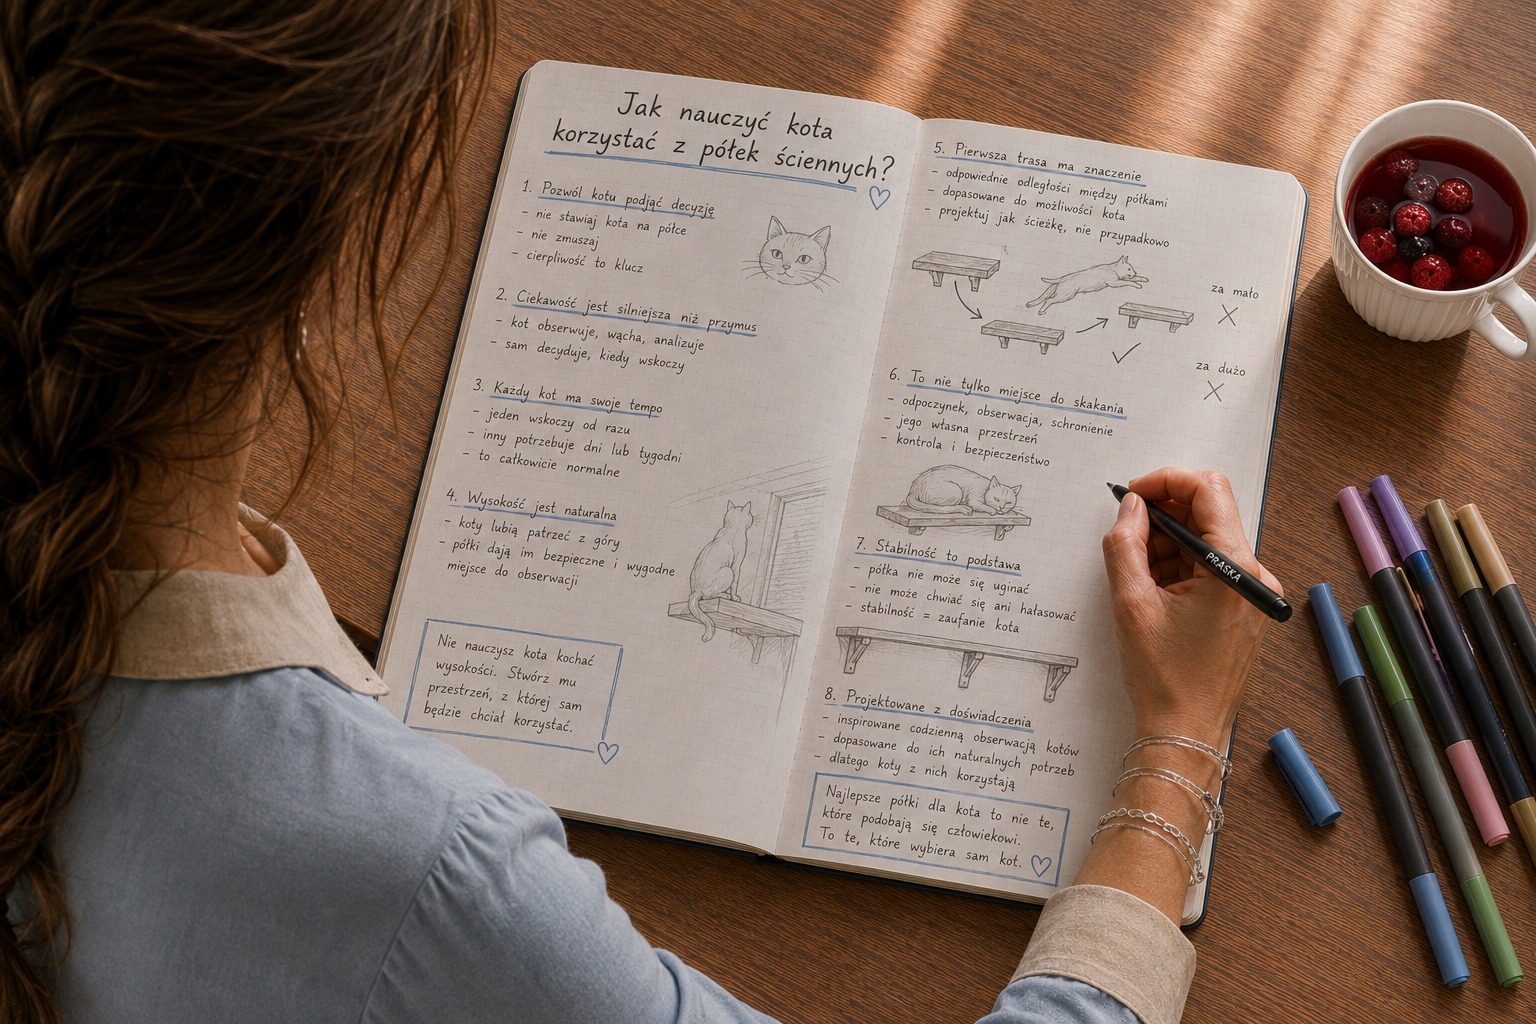 Jak nauczyć kota
korzystać z półek ściennych?
1. Pozwól kotu podjąć decyzję
- nie stawiaj kota na półce
- nie zmuszaj
- cierpliwość to klucz
2. Ciekawość jest silniejsza niż przymus
- kot obserwuje, wącha, analizuje
- sam decyduje, kiedy wskoczy
3. Każdy kot ma swoje tempo
- jeden wskoczy od razu
- inny potrzebuje dni lub tygodni
- to całkowicie normalne
4. Wysokość jest naturalna
- koty lubią patrzeć z góry
- półki dają im bezpieczne i wygodne
miejsce do obserwacji
Nie nauczysz kota kochać
wysokości. Stwórz mu
przestrzeń, z której sam
będzie chciał korzystać.
5. Pierwsza trasa ma znaczenie
- odpowiednie odległości między półkami
- dopasowane do możliwości kota
- projektuj jak ścieżkę, nie przypadkowo
za mało
za dużo
6. To nie tylko miejsce do skakania
- odpoczynek, obserwacja, schronienie
- jego własna przestrzeń
- kontrola i bezpieczeństwo
7. Stabilność to podstawa
- półka nie może się uginać
- nie może chwiać się ani hałasować
- stabilność = zaufanie kota
8. Projektowane z doświadczenia
- inspirowane codzienną obserwacją kotów
- dopasowane do ich naturalnych potrzeb
- dlatego koty z nich korzystają
Najlepsze półki dla kota to nie te,
które podobają się człowiekowi.
To te, które wybiera sam kot.
PRASKA